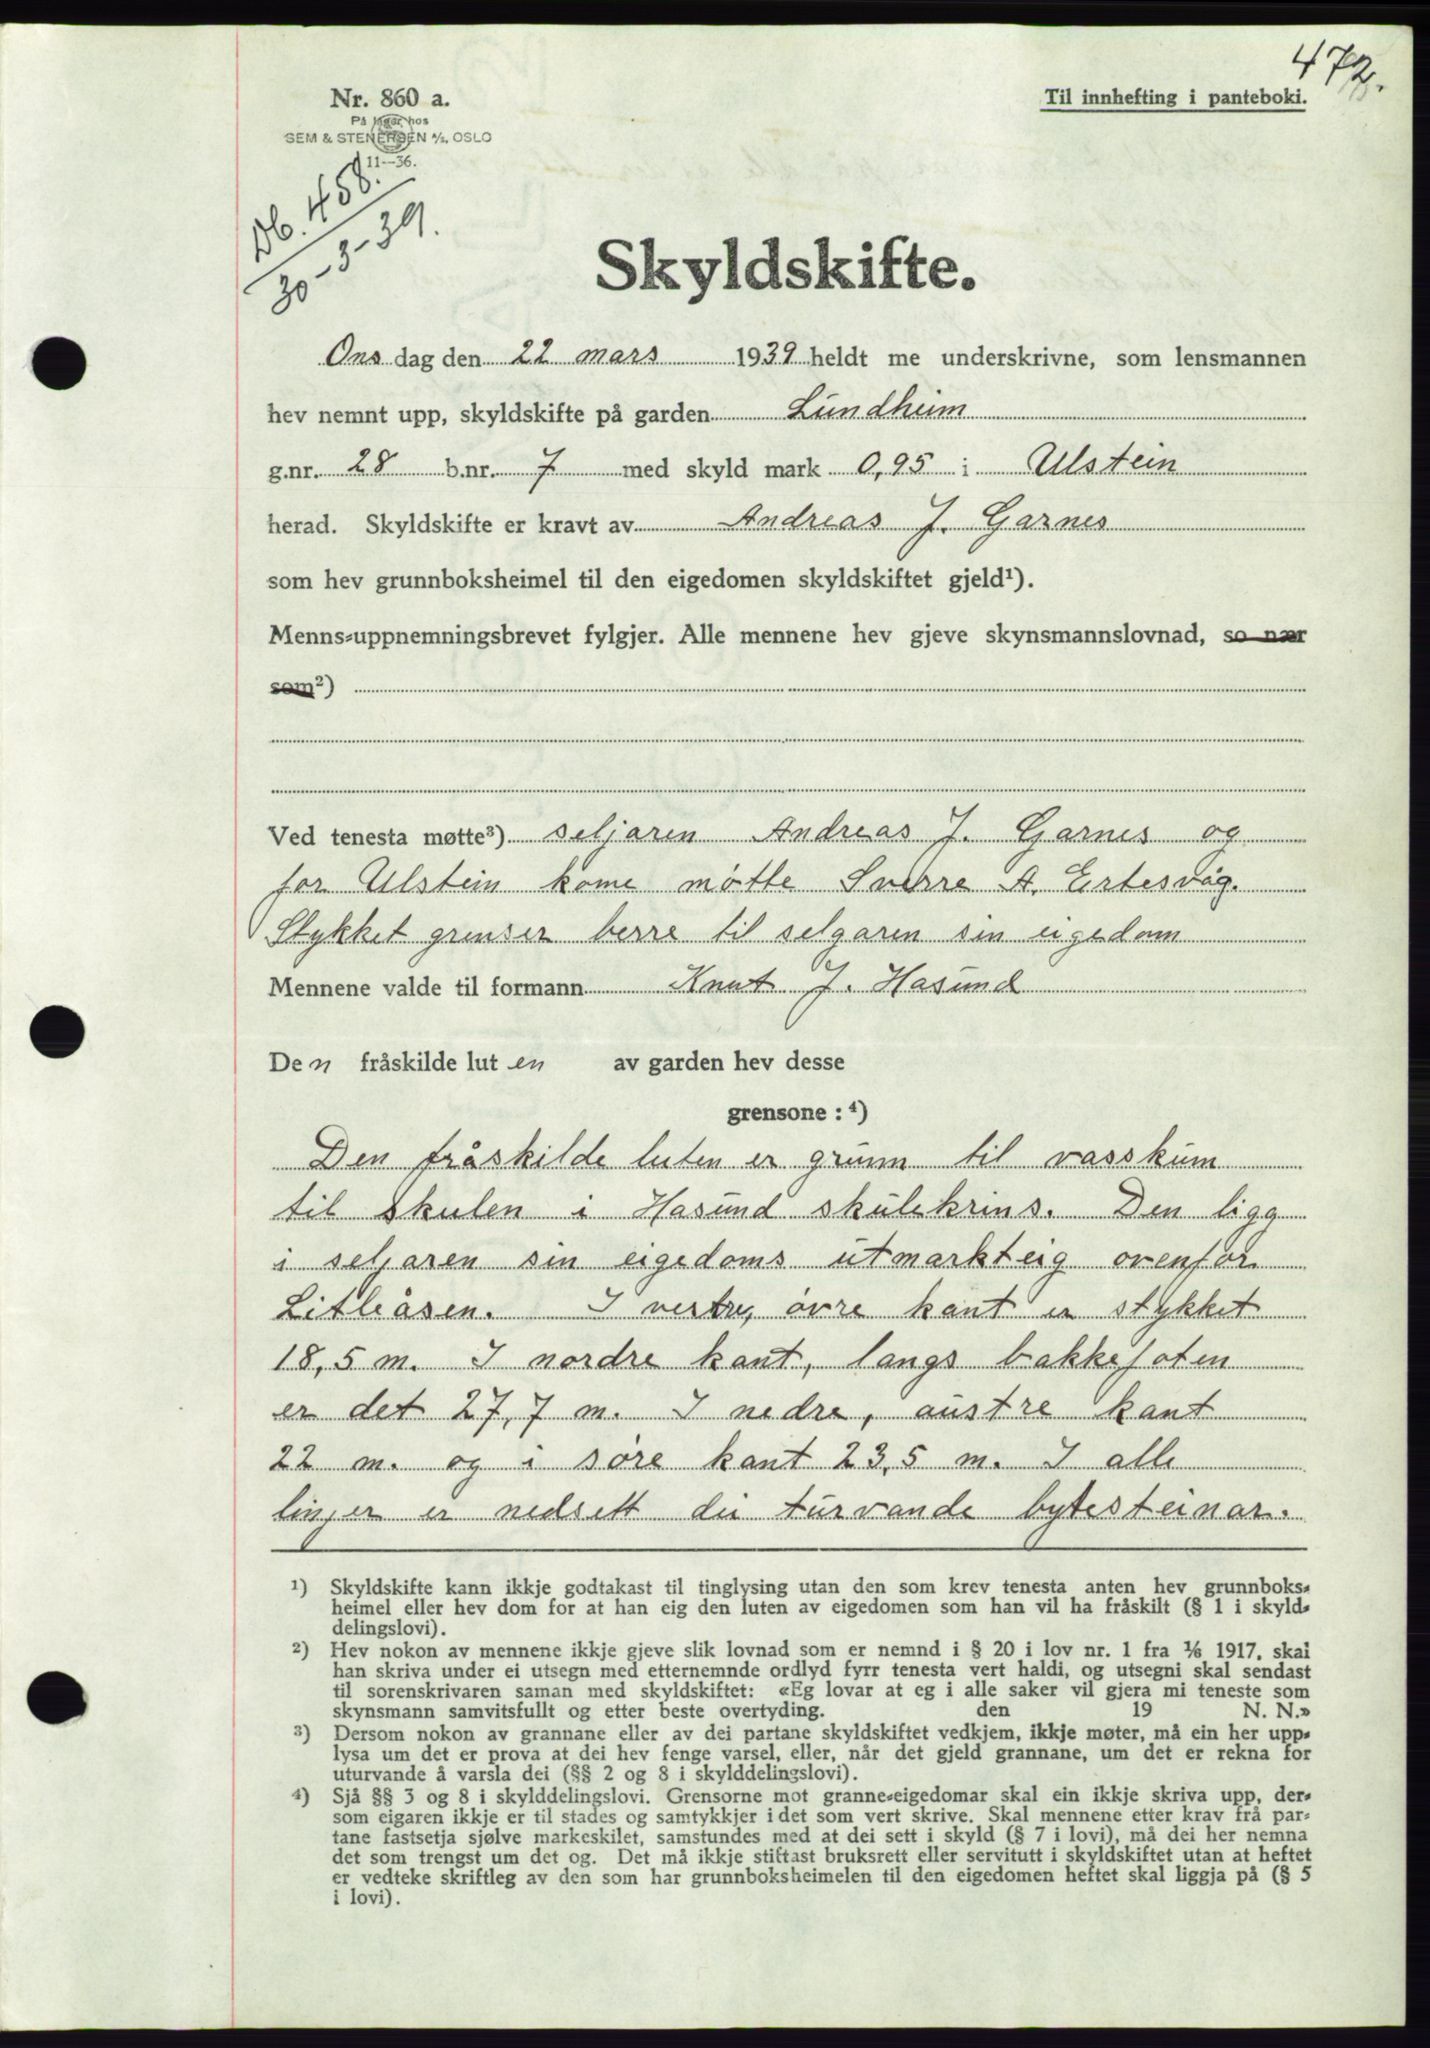 472.
Nr. 860 a.
Til innhefting i panteboki.
På lager hos
SEM & STENERSEN A/S, OSLO
11--36.
Db. 458.
30-3-39.
Skyldskifte.
Onsdag den 22 mars 1939 heldt me underskrivne, som lensmannen
hev nemnt upp, skyldskifte på garden Lundheim
g.nr. 28 b.nr. 7 med skyld mark 0,95 i Ulstein
herad. Skyldskifte er kravt av Andreas J. Garnes
som hev grunnboksheimel til den eigedomen skyldskiftet gjeld¹).
Menns-uppnemningsbrevet fylgjer. Alle mennene hev gjeve skynsmannslovnad, so nær
som²)
Ved tenesta møtte³) seljaren Andreas J. Garnes og
for Ulstein kome møtte Sverre A. Ertesvåg.
Stykket grenser berre til selgaren sin eigedom
Mennene valde til formann Knut J. Hasund
Den fråskilde luten av garden hev desse
grensone : ⁴)
Den fråskilde luten er grunn til vasskum
til skulen i Hasund skulekrins. Den ligg
i seljaren sin eigedoms utmarkteig ovenfor
Litleåsen. I vestre, øvre kant er stykket
18,5 m. I nordre kant, langs bakkefoten
er det 27,7 m. I nedre, austre kant
22 m. og i søre kant 23,5 m. I alle
linjer er nedsett dei turvande bytesteinar.
¹) Skyldskifte kann ikkje godtakast til tinglysing utan den som krev tenesta anten hev grunnboks-
heimel eller hev dom for at han eig den luten av eigedomen som han vil ha fråskilt (§ 1 i skyld-
delingslovi).
²) Hev nokon av mennene ikkje gjeve slik lovnad som er nemnd i § 20 i lov nr. 1 fra 1/6 1917, skal
han skriva under ei utsegn med etternemnde ordlyd fyrr tenesta vert haldi, og utsegni skal sendast
til sorenskrivaren saman med skyldskiftet: «Eg lovar at eg i alle saker vil gjera mi teneste som
skynsmann samvitsfullt og etter beste overtyding. den 19 N. N.»
³) Dersom nokon av grannane eller av dei partane skyldskiftet vedkjem, ikkje møter, må ein her upp-
lysa um det er prova at dei hev fenge varsel, eller, når det gjeld grannane, um det er rekna for
uturvande å varsla dei (§§ 2 og 8 i skylddelingslovi).
⁴) Sjå §§ 3 og 8 i skylddelingslovi. Grensorne mot granne-eigedomar skal ein ikkje skriva upp, der-
som eigaren ikkje er til stades og samtykkjer i det som vert skrive. Skal mennene etter krav frå par-
tane fastsetja sjølve markeskilet, samstundes med at dei sett i skyld (§ 7 i lovi), må dei her nemna
det som trengst um det og. Det må ikkje stiftast bruksrett eller servitutt i skyldskiftet utan at heftet
er vedteke skriftleg av den som har grunnboksheimelen til den eigedomen heftet skal liggja på (§ 5
i lovi).